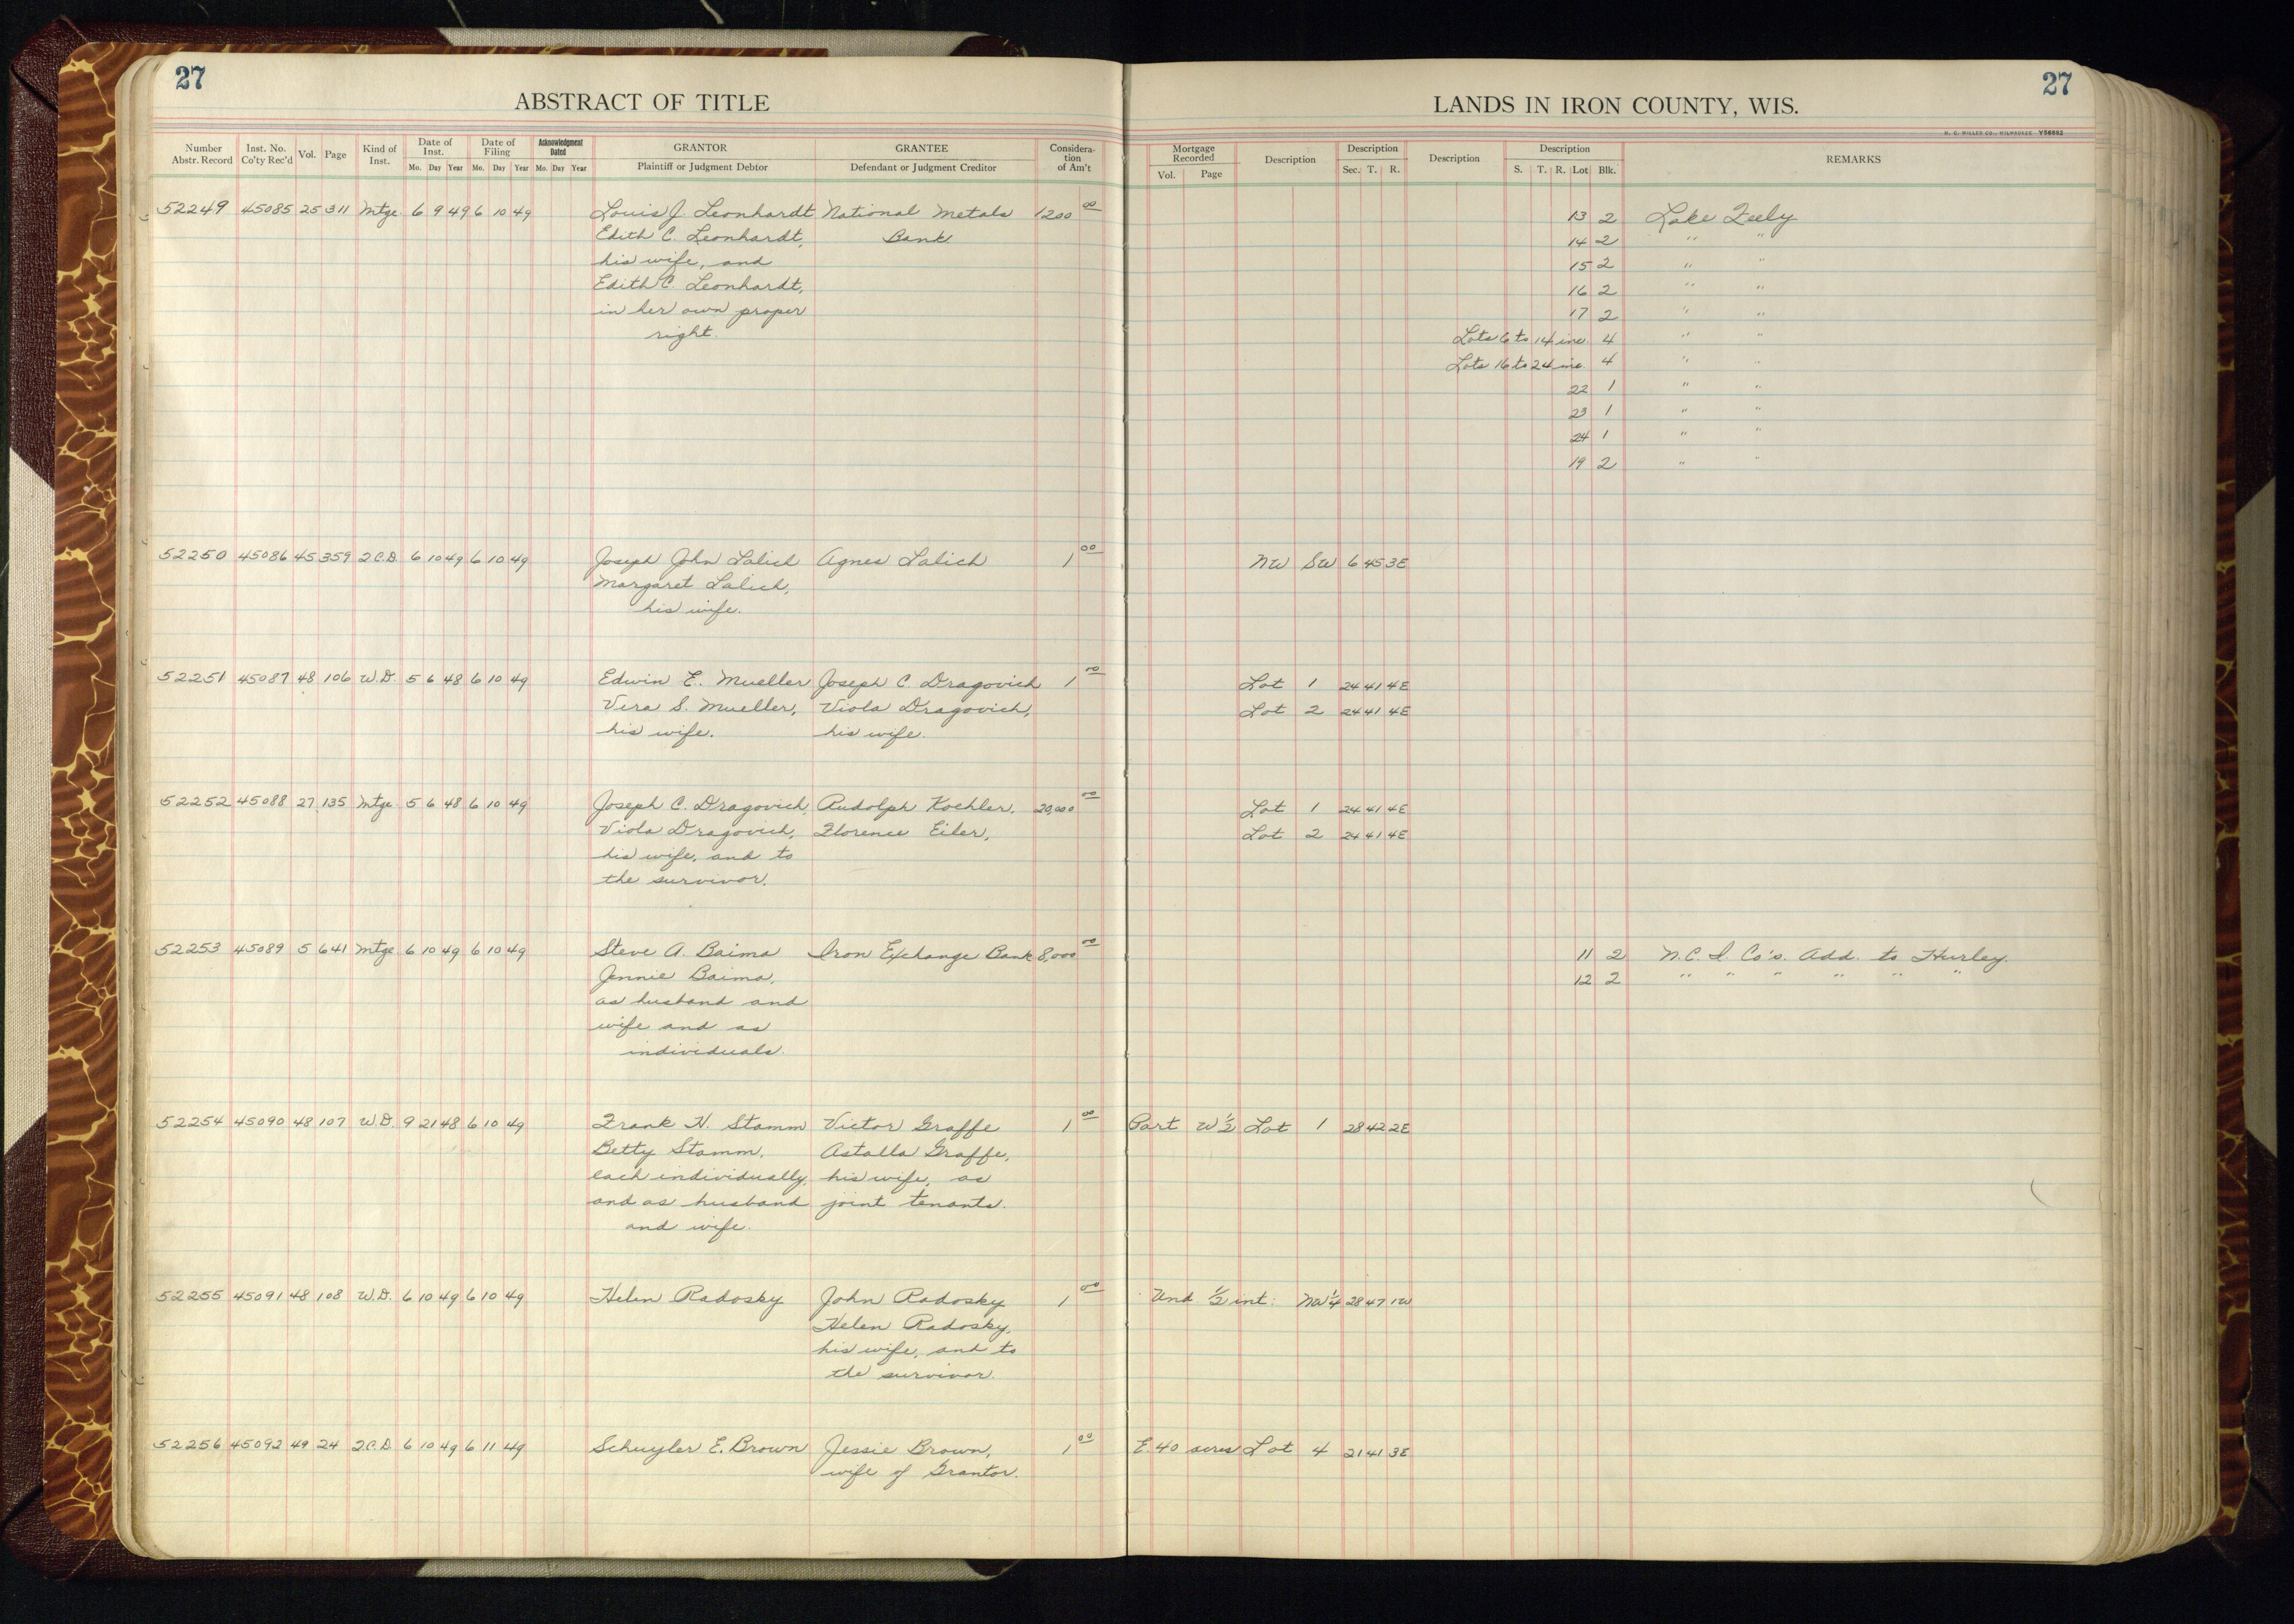 27
27
ABSTRACT OF TITLE
LANDS IN IRON COUNTY, WIS.
H. C. MILLER CO., MILWAUKEE Y56882
Number Abstr. Record Inst. No. Co'ty Rec'd Vol. Page Kind of Inst. Date of Inst. Mo. Day Year Date of Filing Mo. Day Year Acknowledgment Dated Mo. Day Year GRANTOR Plaintiff or Judgment Debtor GRANTEE Defendant or Judgment Creditor Considera-tion of Am't Mortgage Recorded Vol. Page Description Description Sec. T. R. Description Description S. T. R. Lot Blk. REMARKS
52249 45085 25 311 Mtge. 6 9 49 6 10 49 Louis J. Leonhardt National Metals 1200 00 13 2 Lake Feely
Edith C. Leonhardt, Bank 14 2 " "
his wife, and 15 2 " "
Edith C. Leonhardt, 16 2 " "
in her own proper 17 2 " "
right. Lots 6 to 14 inc. 4 " "
Lots 16 to 24 inc. 4 " "
22 1 " "
23 1 " "
24 1 " "
19 2 " "
52250 45086 45 359 2.C.D. 6 10 49 6 10 49 Joseph John Lalich Agnes Lalich 1 00 NW SW 6 45 3E
Margaret Lalich,
his wife.
52251 45087 48 106 W.D. 5 6 48 6 10 49 Edwin E. Mueller Joseph C. Dragovich 1 00 Lot 1 24 41 4E
Vera S. Mueller, Viola Dragovich, Lot 2 24 41 4E
his wife. his wife.
52252 45088 27 135 Mtge 5 6 48 6 10 49 Joseph C. Dragovich, Rudolph Koehler, 20,000 00 Lot 1 24 41 4E
Viola Dragovich, Florence Eiler, Lot 2 24 41 4E
his wife, and to
the survivor.
52253 45089 5 641 Mtge 6 10 49 6 10 49 Steve A. Baima Iron Exchange Bank 8,000 00 11 2 N.C.I. Co's. Add. to Hurley.
Jennie Baima, 12 2 " " " " " "
as husband and
wife and as
individuals.
52254 45090 48 107 W.D. 9 21 48 6 10 49 Frank H. Stamm Victor Graffe 1 00 Part W 1/2 Lot 1 28 42 2E
Betty Stamm, Astalla Graffe,
each individually, his wife, as
and as husband joint tenants.
and wife.
52255 45091 48 108 W.D. 6 10 49 6 10 49 Helen Radosky John Radosky 1 00 Und. 1/2 int: NW 1/4 28 47 1W
Helen Radosky,
his wife, and to
the survivor.
52256 45092 49 24 2.C.D. 6 10 49 6 11 49 Schuyler E. Brown Jessie Brown, 1 00 E. 40 acres Lot 4 21 41 3E
wife of Grantor.